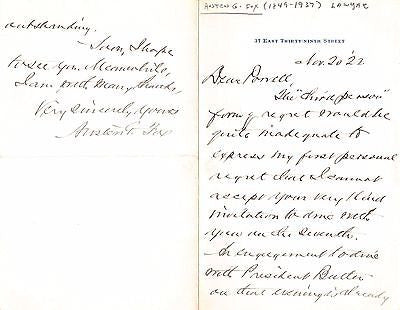 AUSTEN G. FOX (1849-1937) LAWYER
37 EAST THIRTY-NINTH STREET
Nov. 20 '22
Dear Powell
The "third person"
form of regret would be
quite inadequate to
express my first personal
regret that I cannot
accept your very kind
invitation to dine with
you on the seventh.
An engagement to dine
with President Butler
on that evening is already
outstanding.
Soon, I hope
to see you. Meanwhile,
I am, with many thanks,
Very sincerely yours
Austen G. Fox